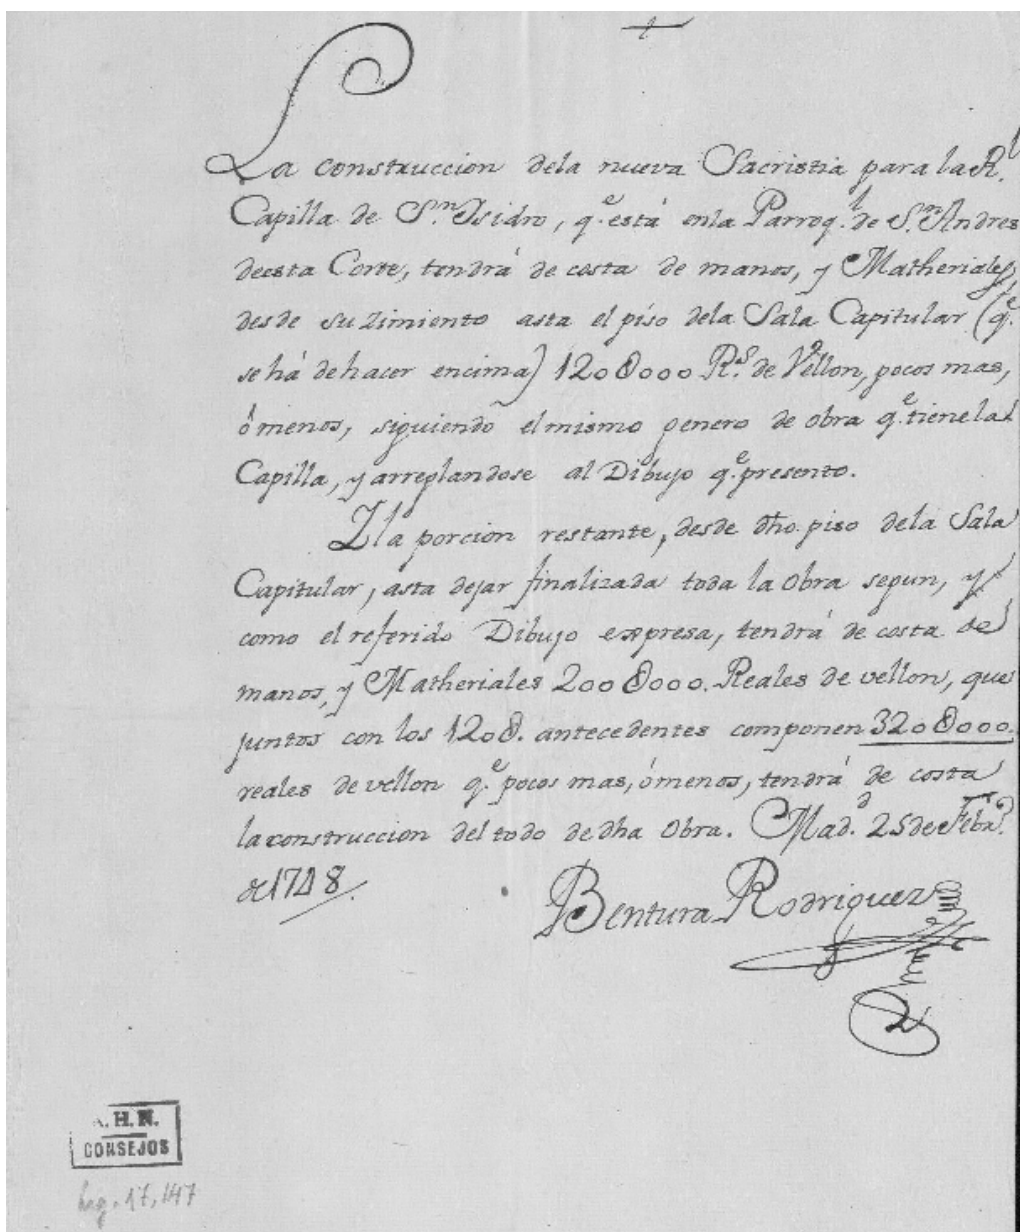 La construccion dela nueva Sacristia para la R.l
Capilla de S.n Isidro, q.e está enla Parroq.l de S.n Andres
deesta Corte, tendrá de costa de manos, y Matheriales,
desde su zimiento asta el piso dela Sala Capitular (q.e
se há dehacer encima) 120@000 R.s de Vellon, pocos mas,
ómenos, siguiendo el mismo genero de obra q.e tiene la
Capilla, y arreglandose al Dibujo q.e presento.
Y la porcion restante, desde dho. piso dela Sala
Capitular, asta dejar finalizada toda la obra segun, y
como el referido Dibujo expresa, tendrá de costa de
manos, y Matheriales 200@000. Reales de vellon, que
juntos con los 120@. antecedentes componen 320@000.
reales de vellon q.e pocos mas, ómenos, tendrá de costa
la construccion del todo de dha Obra. Mad.d 25 de Feb.ro
de 1748.
Bentura Rodriguez
A.H.N.
CONSEJOS
leg. 17,147